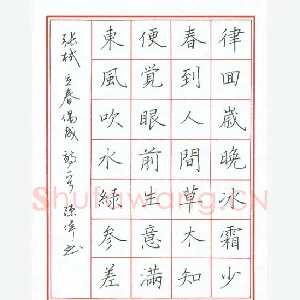 律回歲晚冰霜少
春到人間草木知
便覺眼前生意滿
東風吹水綠參差
張栻 立春偶成
Shufawang.CN